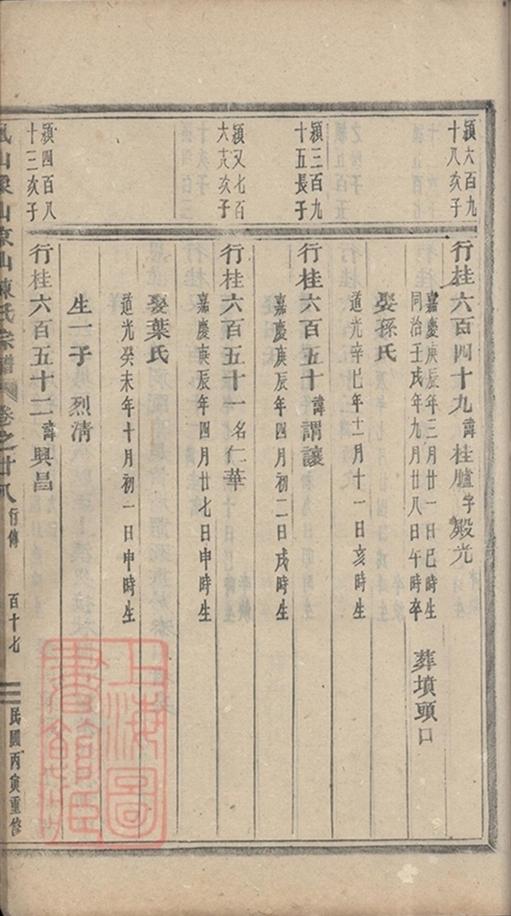 穎六百九
十八亥子
行桂六百四十九諱桂臚字殿光
嘉慶庚辰年三月廿一日巳時生
同治壬戌年九月廿八日午時卒
葬墳頭口
娶孫氏
道光辛巳年十一月十一日亥時生
穎三百九
十五長子
行桂六百五十諱謂讓
嘉慶庚辰年四月初二日戌時生
穎又七百
六十亥子
行桂六百五十一名仁華
嘉慶庚辰年四月廿七日申時生
娶葉氏
道光癸未年十月初一日申時生
生一子 烈清
穎四百八
十三亥子
行桂六百五十二諱興昌
山東山陳氏宗譜
卷之廿八
行傳
百十七
民國丙寅重修
上海圖書館藏